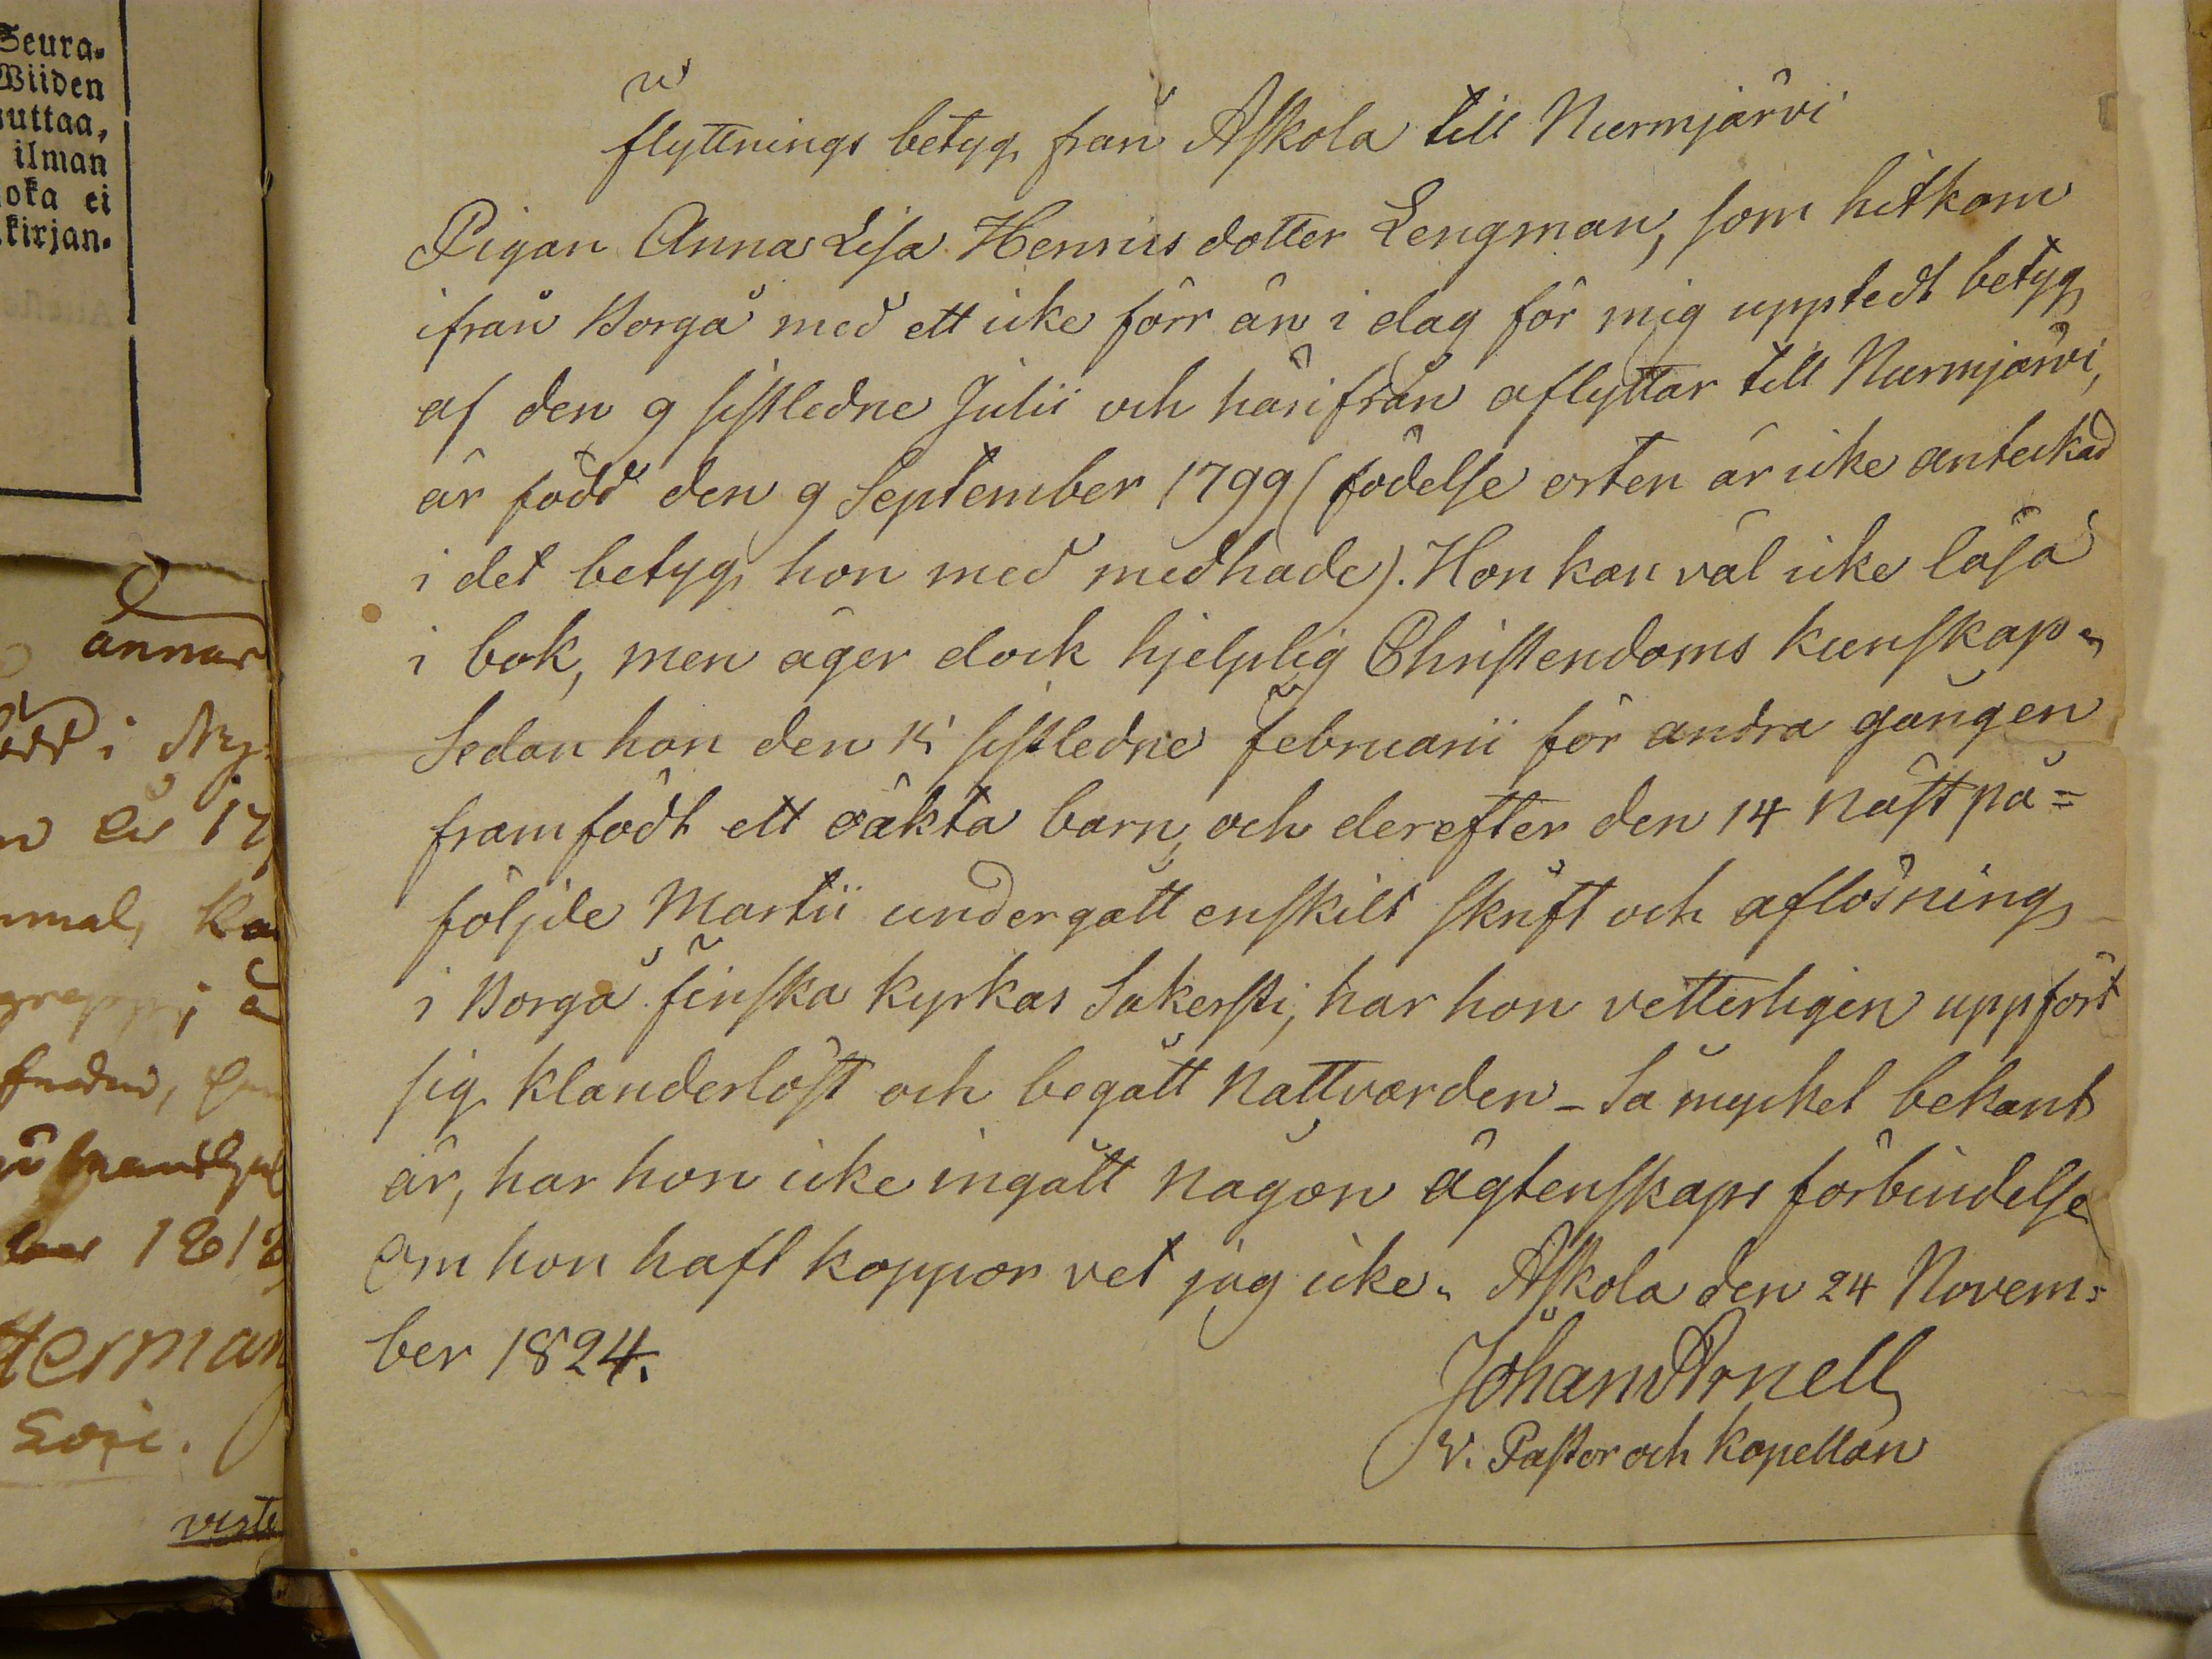 Seura-
Wiiden
uttaa,
ilman
joka ei
kirjan-
annar
i Ny
år 17
mal, ka
1818
tterman
Soci.
flyttnings betyg från Askola till Nurmjärvi
Pigan Anna Lisa Henricsdotter Lengman, som hitkom
ifrån Borgå med ett icke förr än i dag för mig uppteedt betyg
af den 9 sistledne Julii och härifrån aflyttar till Nurmjärvi,
är född den 9 September 1799 (födelse orten är icke anteckad
i det betyg hon med medhade). Hon kan väl icke läsa
i bok, men äger dock hjelplig Christendoms kunskap.
Sedan hon den sistledne februarii för andra gången
framfödt ett oäkta barn, och derefter den 14 näst på=
följde Martii undergått enskilt skrift och aflösning
i Borgå finska kyrkas Sakersti, har hon vetterligen uppfört
sig klanderlöst och begått Nattvarden - Så mycket bekant
är, har hon icke ingått någon ägtenskaps förbindelse
Om hon haft koppor vet jag icke. Askola den 24 Novem=
ber 1824.
Johan Arnell
V. Pastor och Kapellan